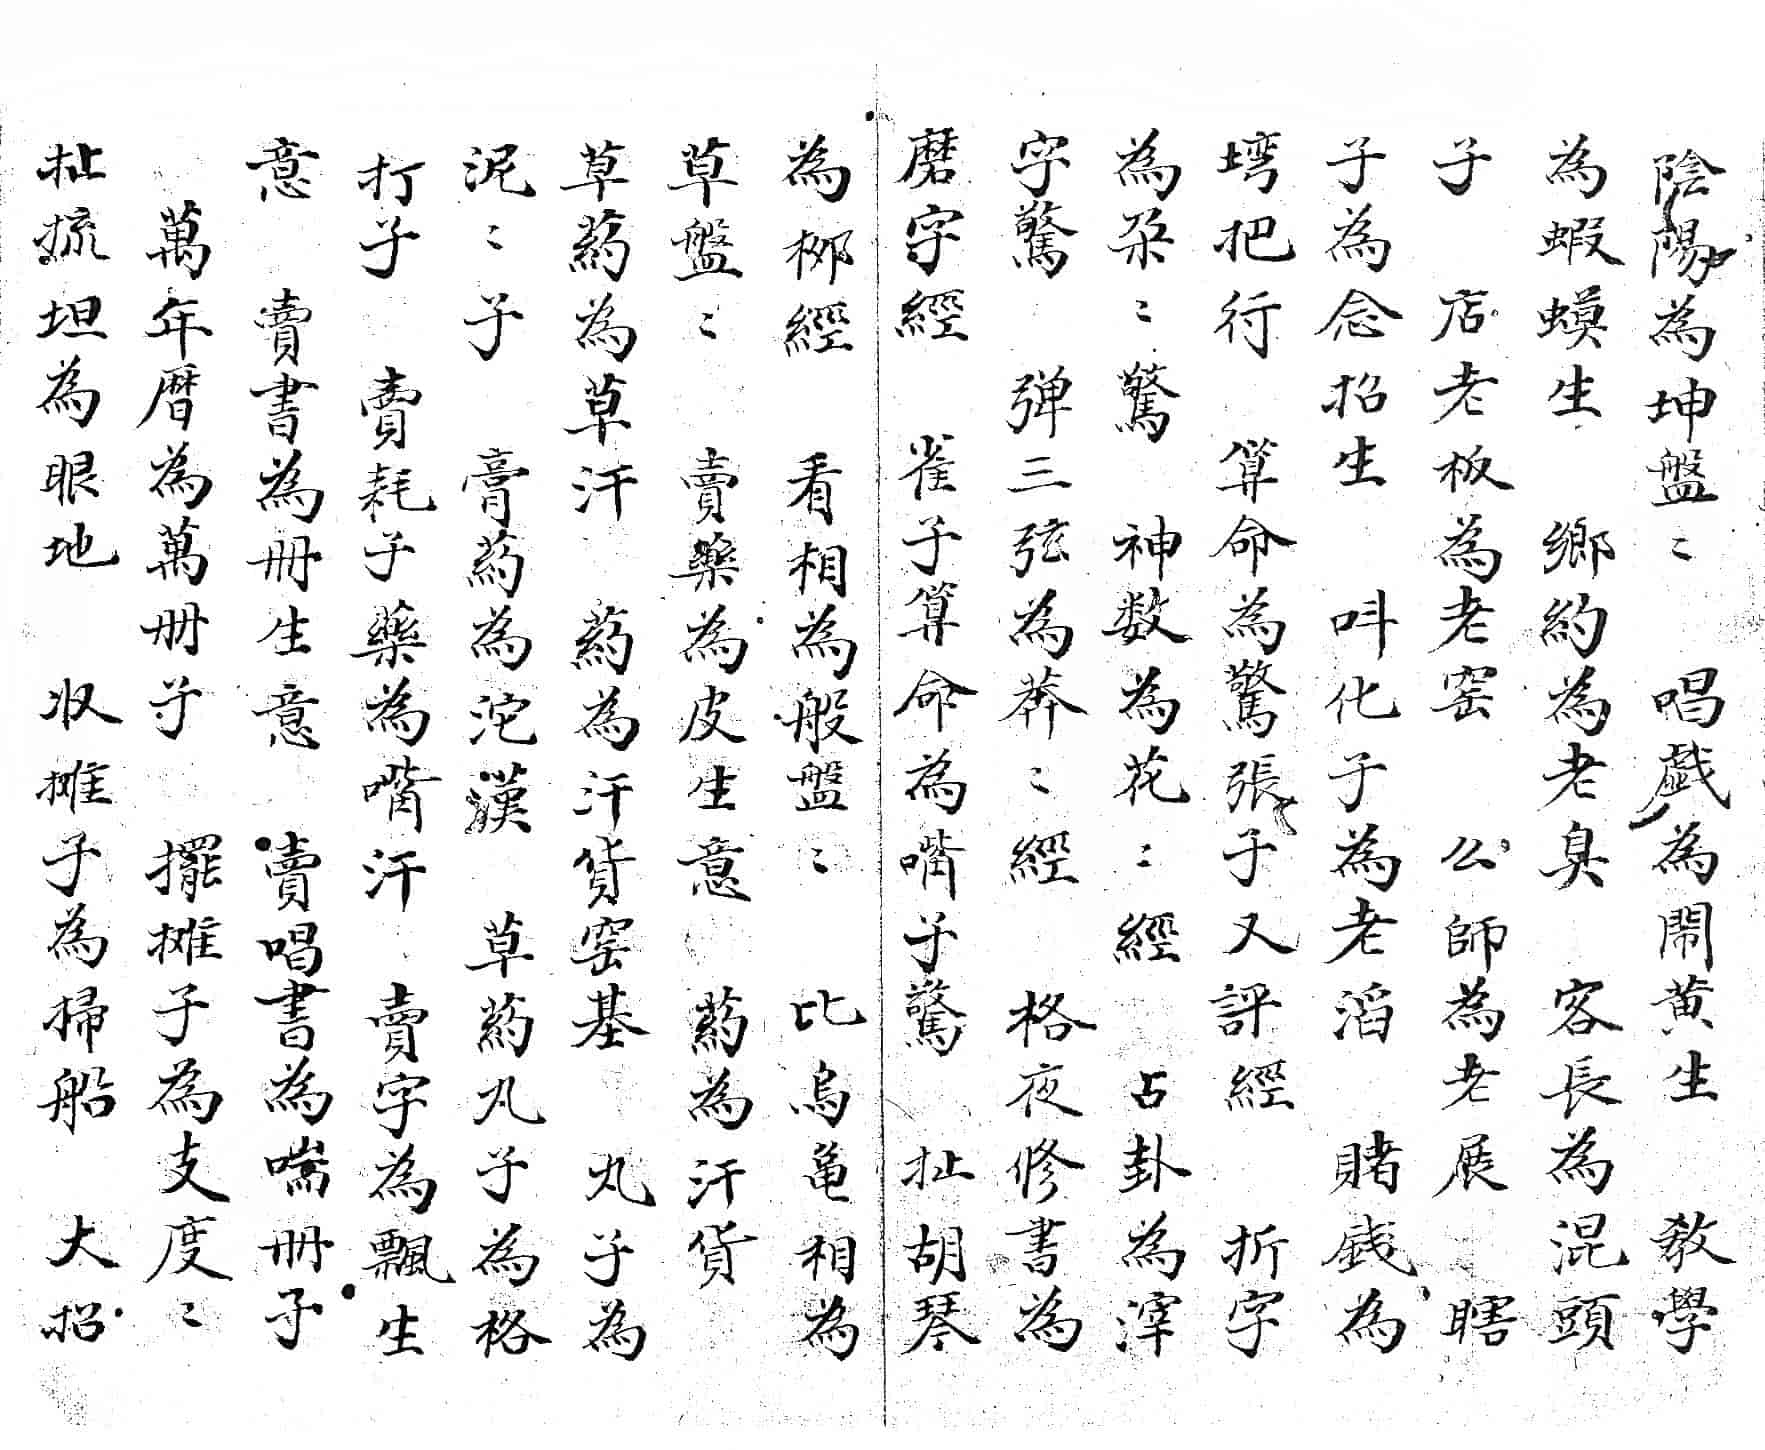 陰陽為坤盤〻　唱戯為鬧黄生　教學
為蝦蟆生　鄉約為老臭　客長為混頭
子　店老板為老窑　公師為老展　瞎
子為念招生　呌化子為老滔　賭戯為
塆把行　算命為驚張子又評經　折字
為朶〻驚　神数為花〻經　占卦為滓
字驚　弹三弦為莽〻經　格夜修書為
磨字經　雀子算命為嘴子驚　扯胡琴
為栁經　看相為般盤〻　比烏亀相為
草盤〻　賣藥為皮生意　葯為汗貨
草葯為草汗　葯為汗貨窑基　丸子為
泥〻子　膏葯為沱漢　草葯丸子為格
打子　賣耗子藥為嘴汗　賣字為飄生
意　賣書為册生意　賣唱書為喘册子
萬年暦為萬册子　擺摊子為支度〻
扯㨨坦為眼地　収摊子為掃船　大招